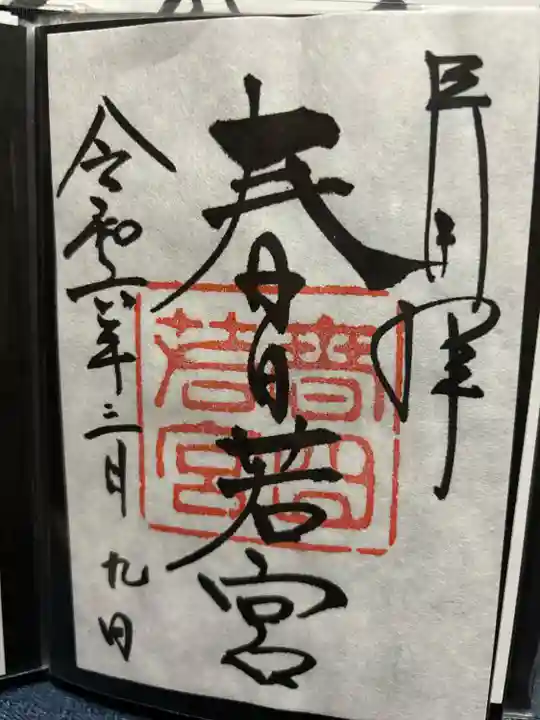 春日若宮
令和六年二月九日
春日
若宮